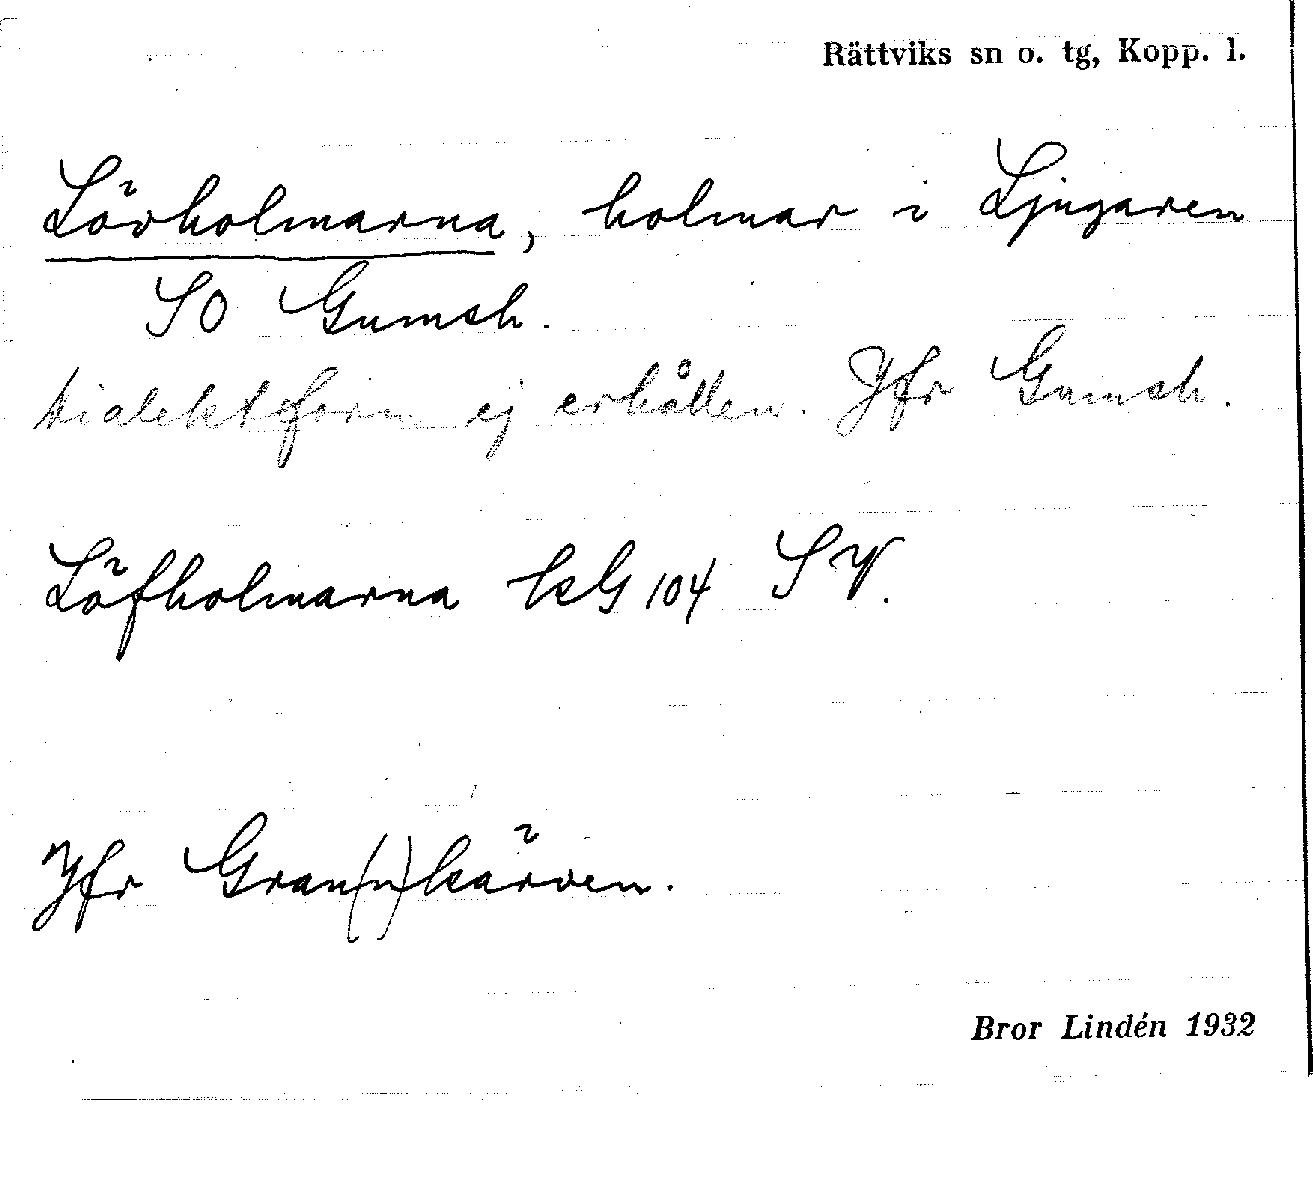 Rättviks sn o. tg, Kopp. l.
Lövholmarna, holmar i Ljugaren
SO Gumsh.
dialektform ej erhållen. Jfr Gumsh.
Löfholmarna kG 104 SV.
Jfr Gran(n)kärven.
Bror Lindén 1932